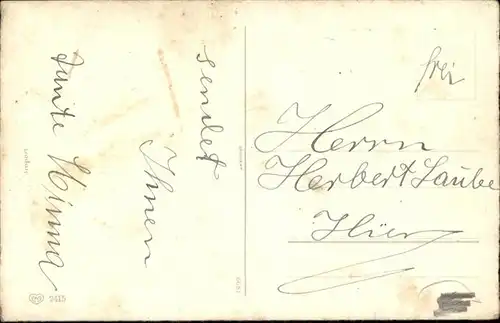 sendet
Ihnen
Tante Minna
frei
Herrn
Herbert Laube
Hier
2415